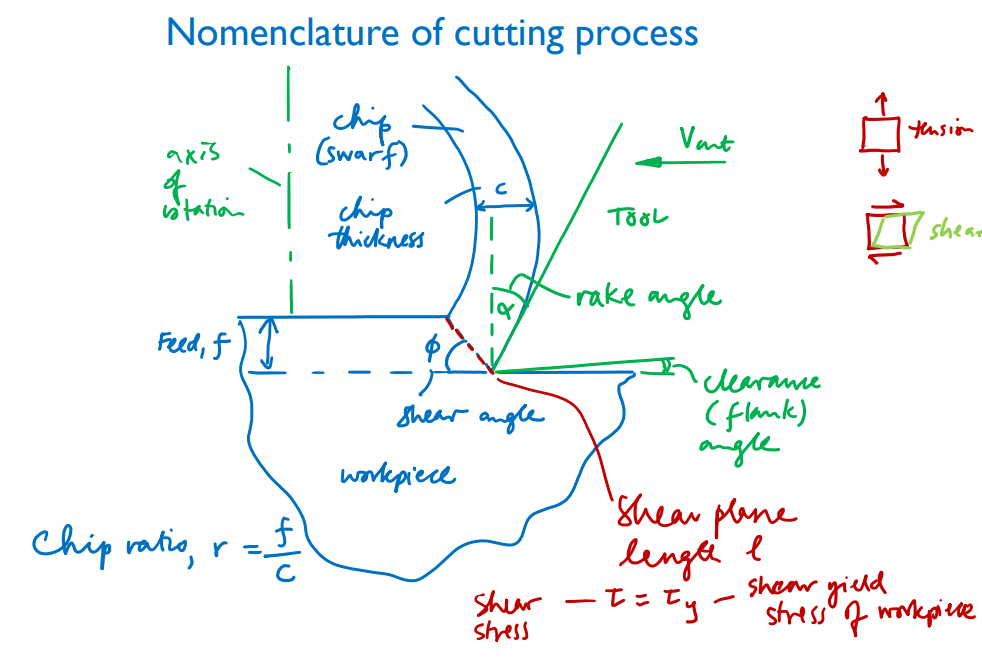 Nomenclature of cutting process
axis
of
rotation
chip
(swarf)
chip
thickness
c
Vcut
TOOL
tension
shear
α
rake angle
Feed, f
ϕ
shear angle
clearance
(flank)
angle
workpiece
Shear plane
length l
Chip ratio, r = f/c
shear
stress
— τ = τy — shear yield
stress of workpiece